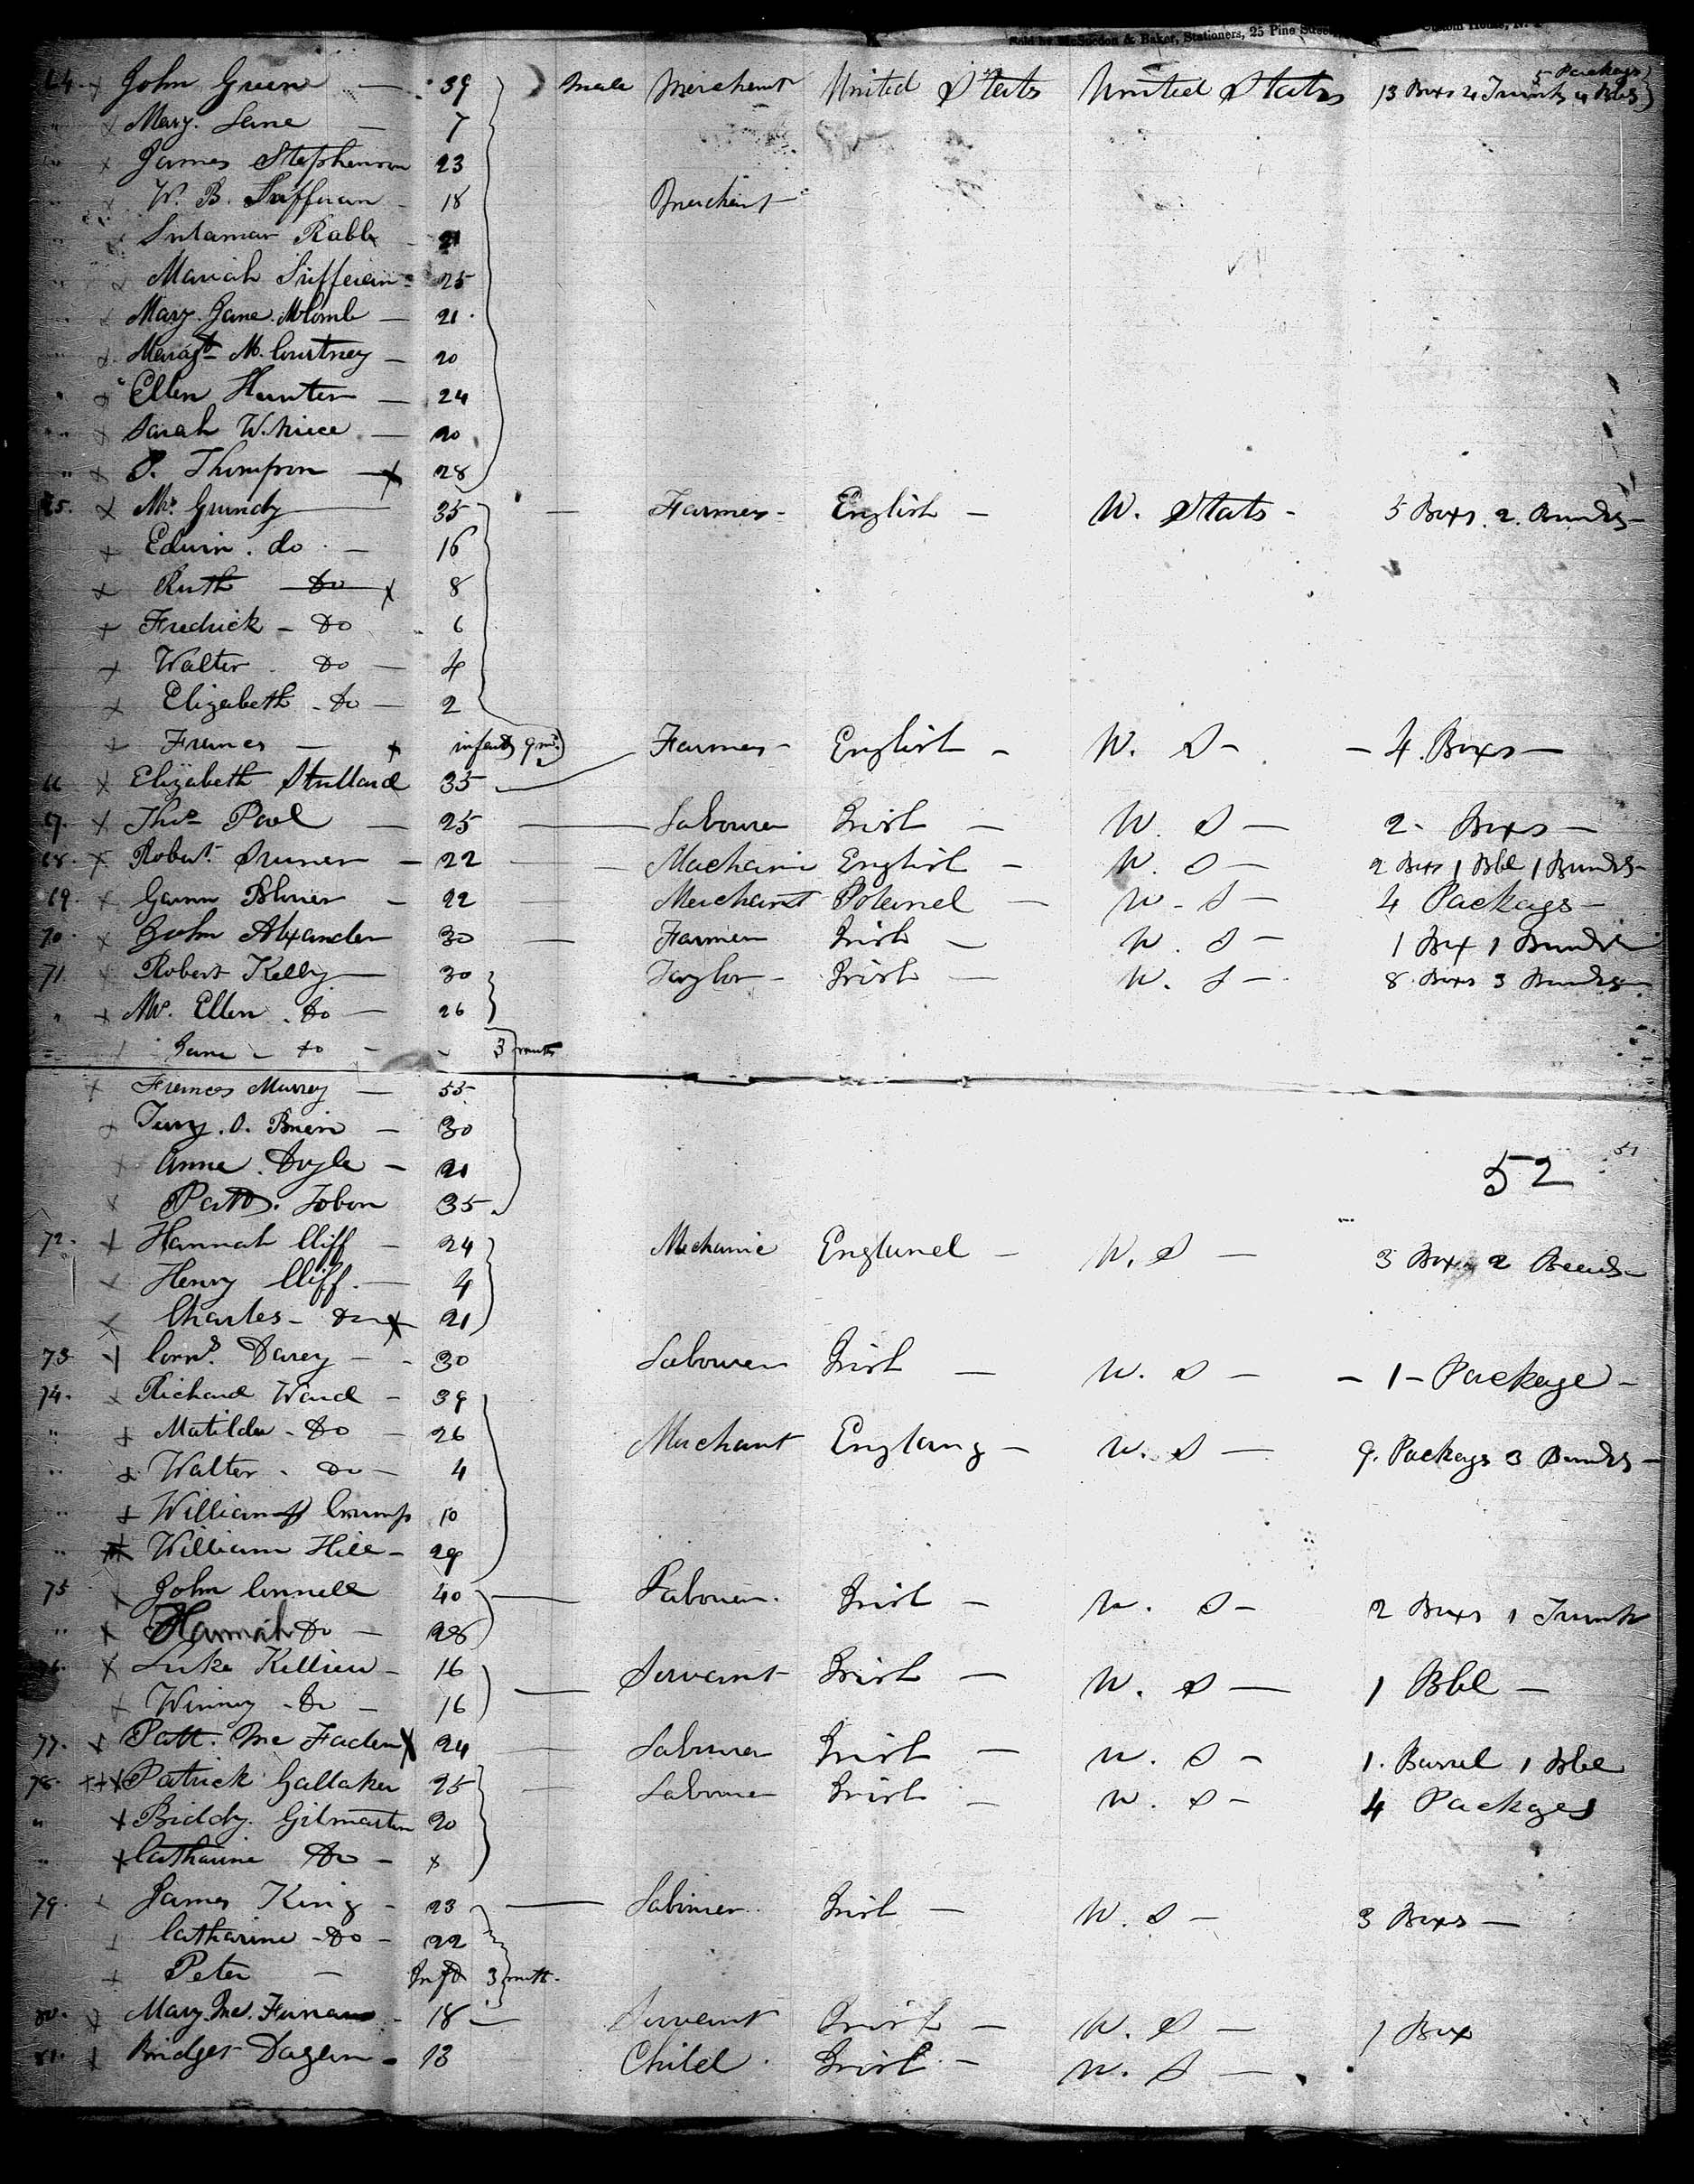 Sold by & Baker, Stationers, 25 Pine Street, Custom House, N.
5 Packags
64. x John Green — 39 male Merchant United States United States 13 Boxs 4 Trunks 4 Bbls
" x Mary. Lane — 7
" x James Stephenson 23
" x W. B. 18 Merchant
" x Rabb 21
" x Mariah 25
" x Mary. Jane. — 21
" x Maragt M. Courtney — 20
" x Ellen Hunter — 24
" x Sarah — 20
" x P. Thompson — x 28
65. x Mr. Grundy — 35 — Farmer - English — U. Stats - 5 Boxs. 2. Bundls —
x Edwin. do — 16
x Ruth — Do x 8
x Fredrick — Do 6
x Walter. Do — 4
x Elizabeth. Do — 2
x Frances — x infant 9 ms. Farmer - English — U. S — — 4. Boxs —
66 x Elizabeth Stullard 35 —
67. x Thos. Pool — 25 — Labourer Irish — U. S — 2 - Boxs —
68. x Robert. — 22 — Mechanic English — U. S — 2 Boxs 1 Bbl 1 Bundls —
69. x — 22 — Merchant Poland — U. S — 4 Packags —
70. x John Alxander 30 — Farmer Irish — U. S — 1 Box 1 Bundle
71. x Robert Kelly — 30 Taylor - Irish — U. S — 8. Boxs 3 Bundls —
" x Mrs. Ellen. Do — 26
" Jane — do — 3 months
x Frances Murrey — 55
x Terry. O. Brien — 30
x Anne. Doyle — 21
52
51
x Patt. Tobon 35.
72. x Hannah Cliff — 24 Mechanic England — U. S — 3 Box 2 Beuds —
x Henry Cliff. — 4
x Charles — Do x 21
73 x Corns. Darcy — 30 Labourer Irish — U. S — — 1 — Package —
74. x Richard Ward — 39
" x Matilda. Do — 26 Merchant Englang — U. S — 9. Packags 3 Bundls —
" x Walter. Do — 4
" x William Crump 10
" x William Hill — 29
75 x John Connell 40 — Labourer. Irish — U. S — 2 Boxs 1 Trunk
" x Hannah Do — 28
76. x Luke Killien — 16 — Servant Irish — U. S — 1 Bbl —
x Winney. Do — 16
77. x Patt. Mc Faden x 24 — Labourer Irish — U. S — 1. Barrel 1 Bbl
78. xxx Patrick Gallaher 25 Labourer Irish — U. S — 4 Packages
" x Biddy. Gilmartin 20
" x Catharine Do — x
79. x James King — 23 — Labourer. Irish — U. S — 3 Boxs —
x Catharine — Do — 22
x Peter — Inft 3 month.
80. x Mary Mc. — 18 — Servant Irish — U. S — 1 Box
81. x Bridget — 13 Child. Irish. — U. S —